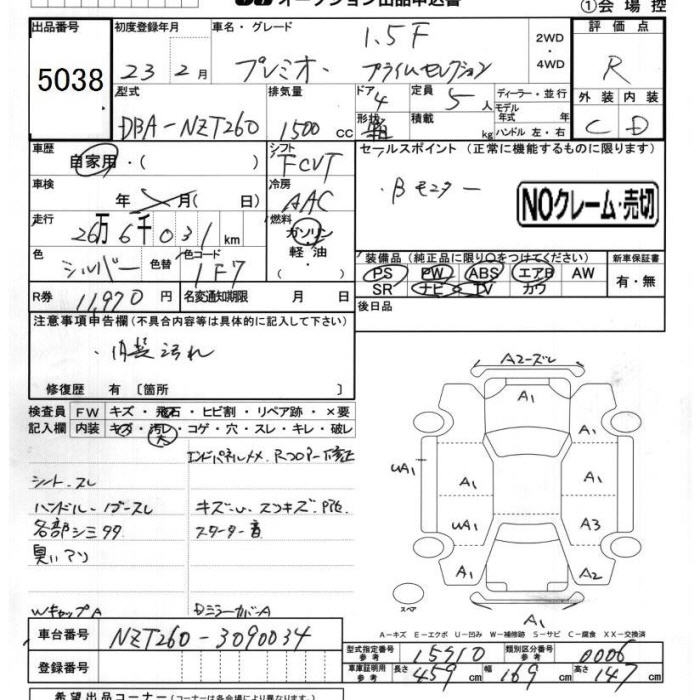 オークション出品申込書
①会場控
出品番号 初度登録年月 車名・グレード 評価点
5038 23 2月 プレミオ 1.5F プライムセレクション 2WD ・ 4WD R
型式 排気量 ドア 定員 ディーラー・並行 外装 内装
DBA-NZT260 1500cc 4 5人 モデル年式 年 C D
形状 箱 積載 kg ハンドル 左・右
車歴 シフト セールスポイント (正常に機能するものに限ります)
自家用・( ) FCVT
車検 冷房 Bモニター
年 月( 日) AAC NOクレーム・売切
走行 燃料
26万6千031km ガソリン・軽油
色 色替 色コード 装備品(純正品に限り○をつけてください) 新車保証書
シルバー 1F7 PS PW ABS エアB AW 有・無
R券 11,970円 名変通知期限 月 日 SR ナビ TV カワ
後日品
注意事項申告欄(不具合内容等は具体的に記入して下さい)
・内装汚れ
修復歴 有 〔箇所 〕
検査員 FW キズ・飛石・ヒビ割・リペア跡・×要
記入欄 内装 キズ・汚レ・コゲ・穴・スレ・キレ・破レ
大
エンドパネルメメ Rコアー修正
シート スレ
ハンドル
キズ・U
各部シミ
スターター音
臭いアリ
WキャップA
DミラーカバーA
A2ーズレ
A1
A1
UA1
A1
A1
UA1
A3
A1
A2
スペア
A1
A-キズ E-エクボ U-凹み W-補修跡 S-サビ C-腐食 XX-交換済
車台番号 NZT260-3090034
登録番号
型式指定番号 参考 15910 類別区分番号 参考 0006
車庫証明用 参考 長さ 459cm 幅 169cm 高さ 147cm
希望出品コーナー